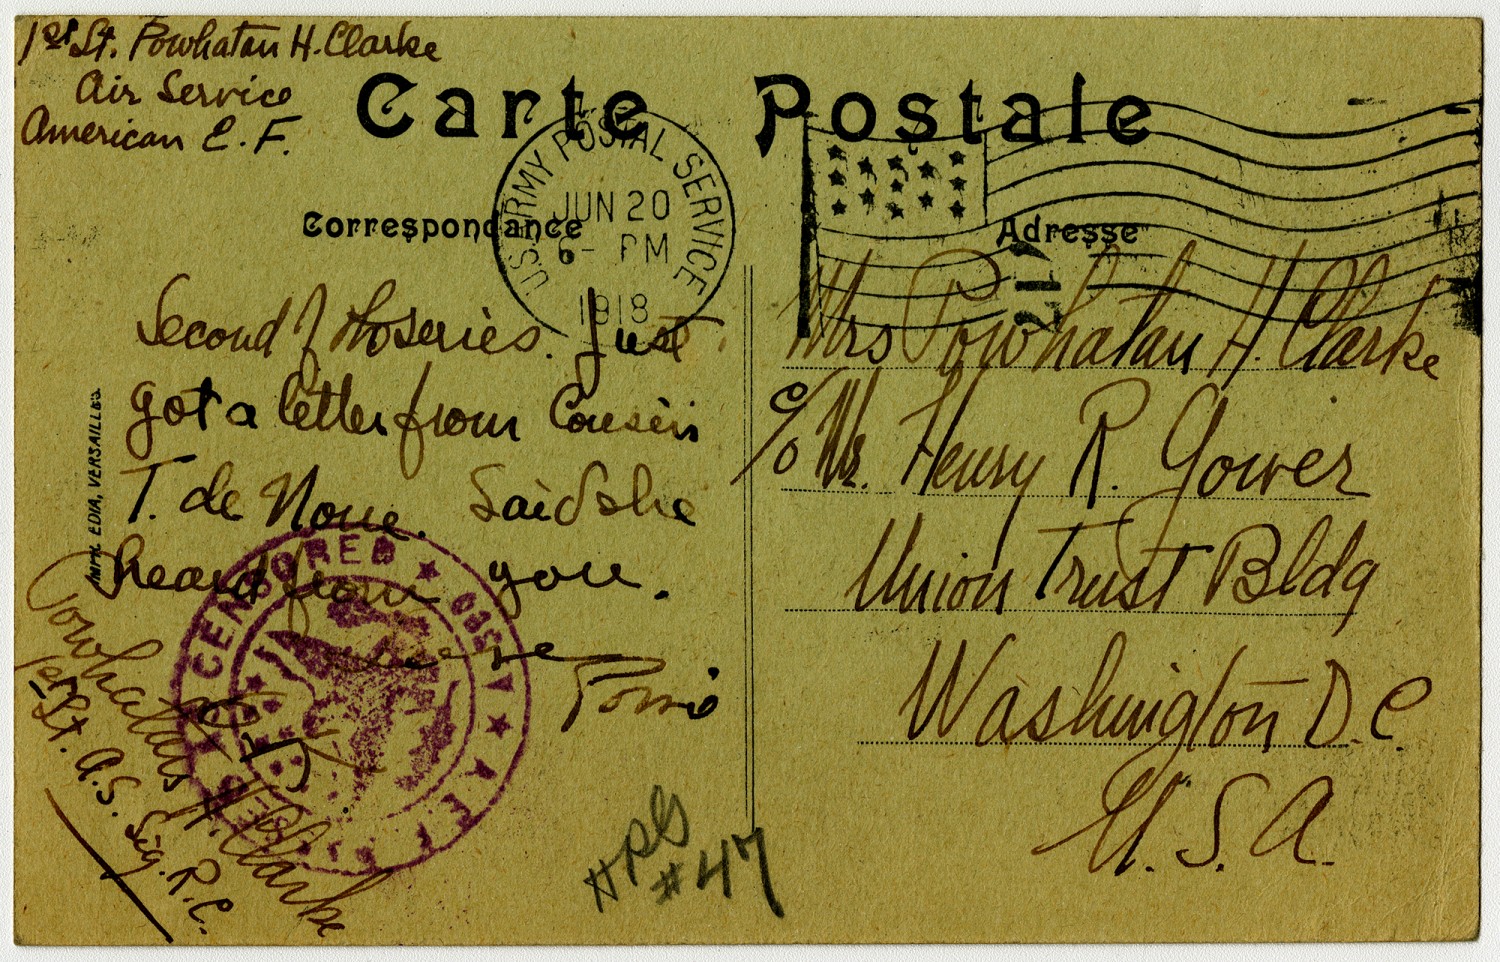 1st Lt. Powhatan H. Clarke
Air Service
American E. F.
Carte Postale
U.S. ARMY POSTAL SERVICE
JUN 20
6- PM
1918
Correspondance
Adresse
717
Second of series. Just
got a letter from Cousin
T. de Noue. Said she
heard from you.
Love
IMPR. EDIA, VERSAILLES
Mrs Powhatan H. Clarke
c/o Mr. Henry R. Gower
Union Trust Bldg
Washington D.C.
U.S.A.
CENSORED
A.E.F.
Powhatan H. Clarke
1st Lt. A.S. Sig. R.C.
#47